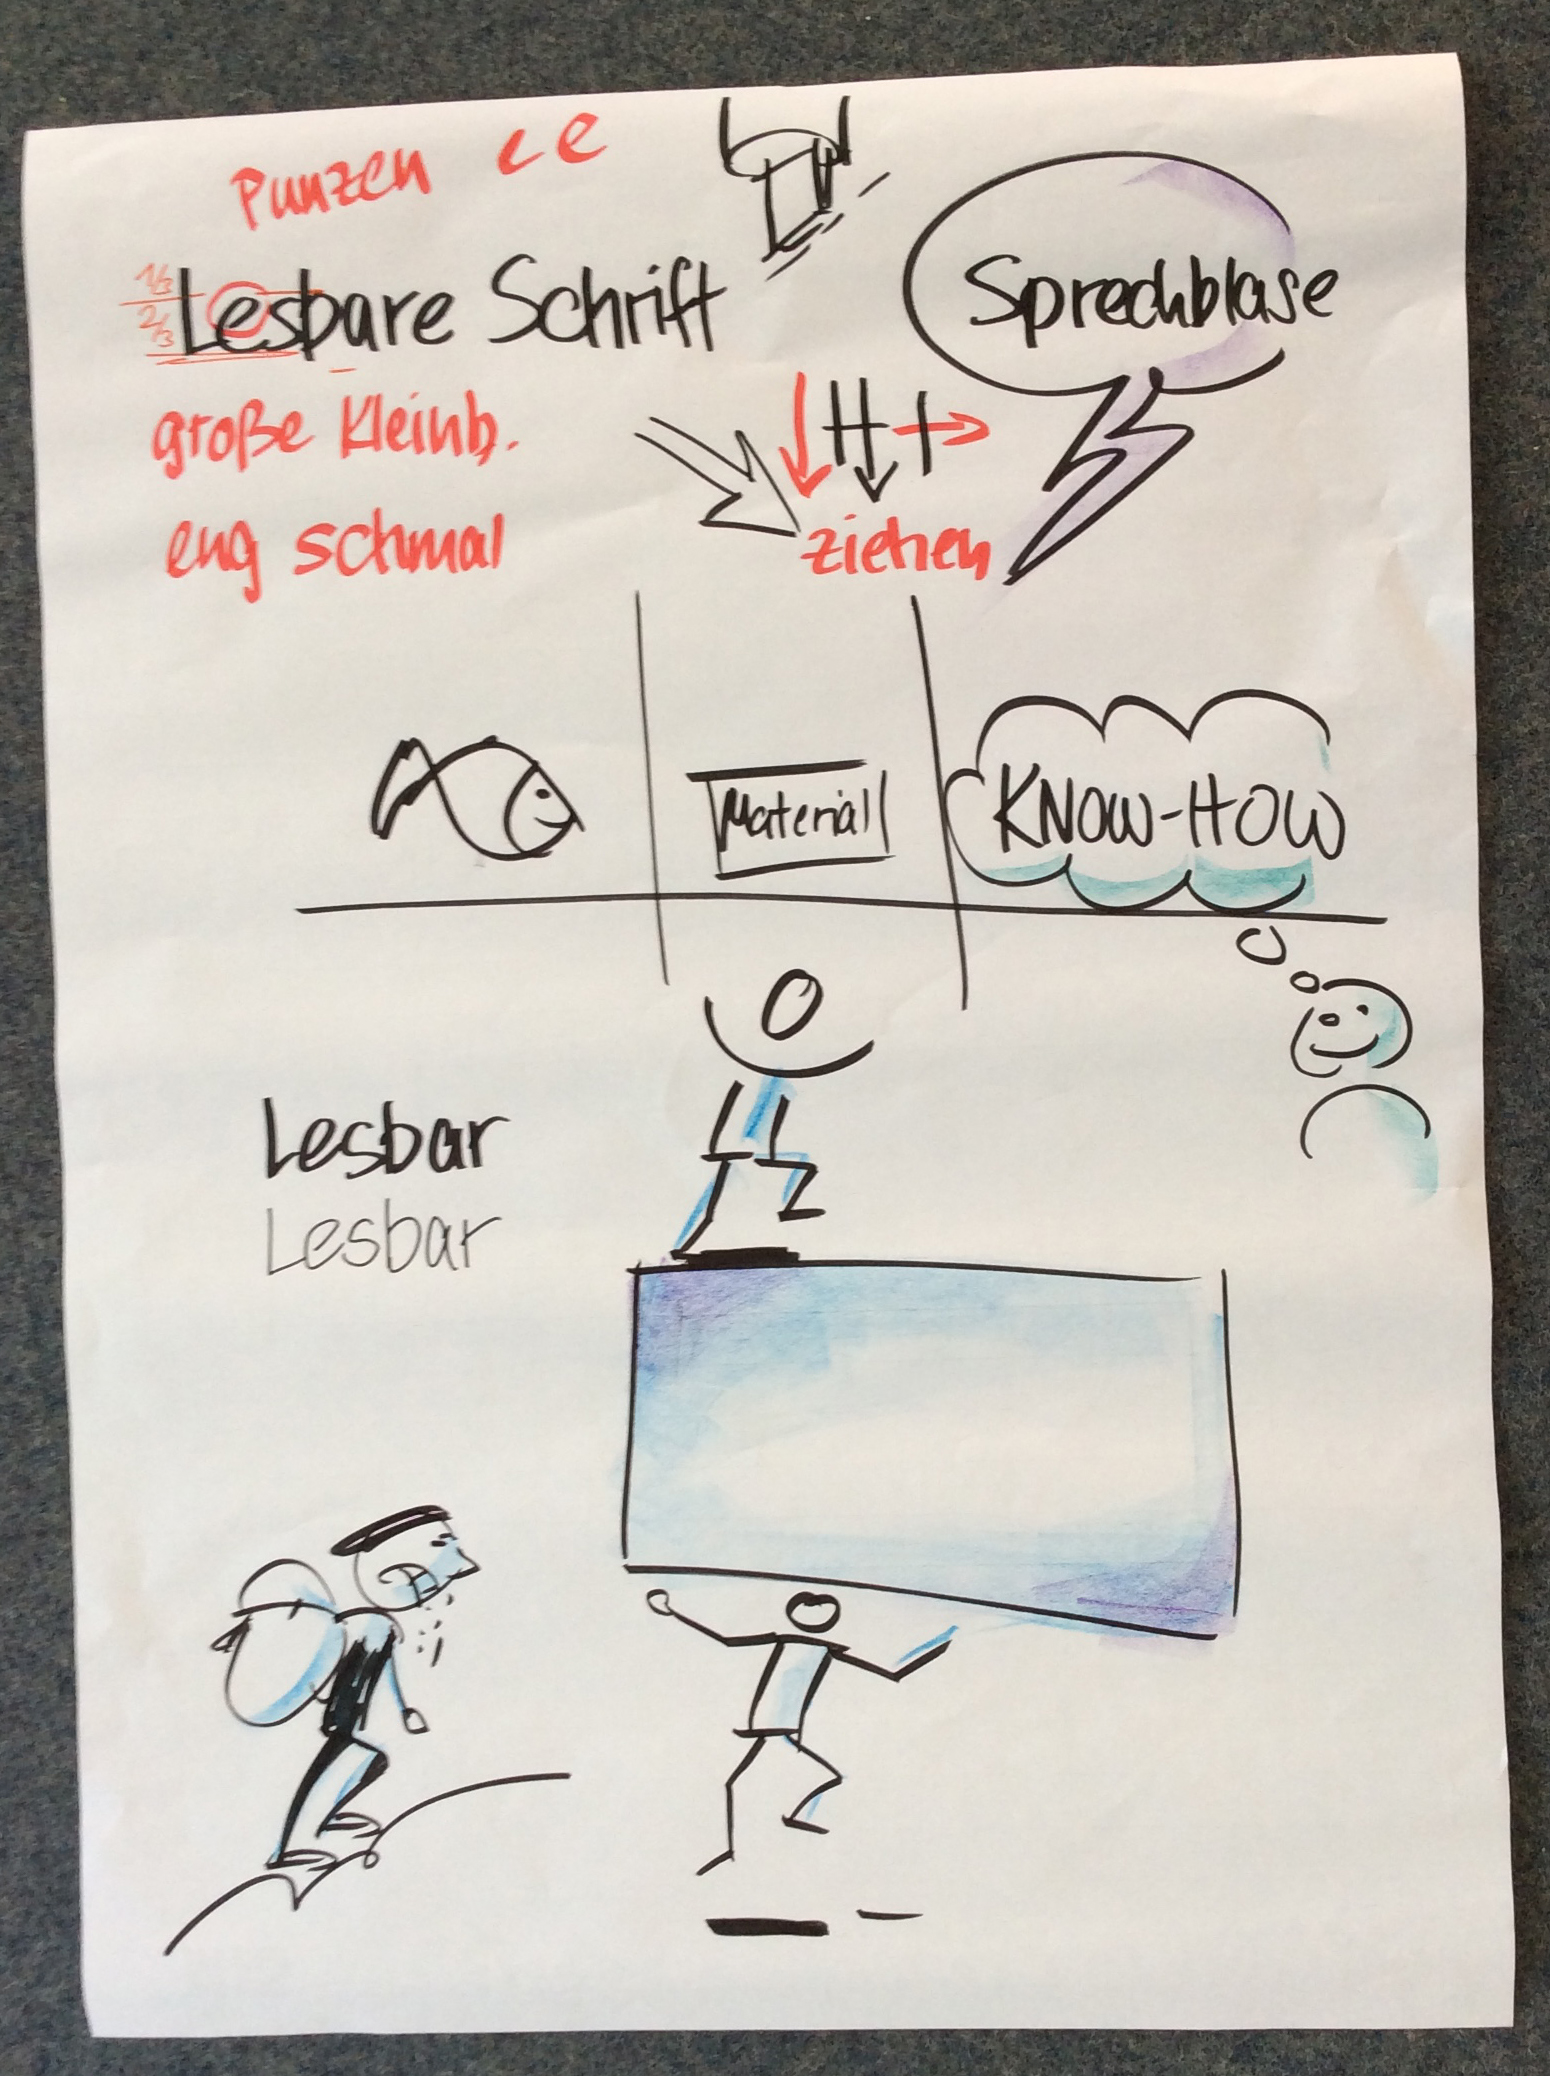 Punzen c e
1/3
2/3
Lesbare Schrift
Sprechblase
große Kleinb.
eng schmal
ziehen
Material
KNOW-HOW
Lesbar
Lesbar